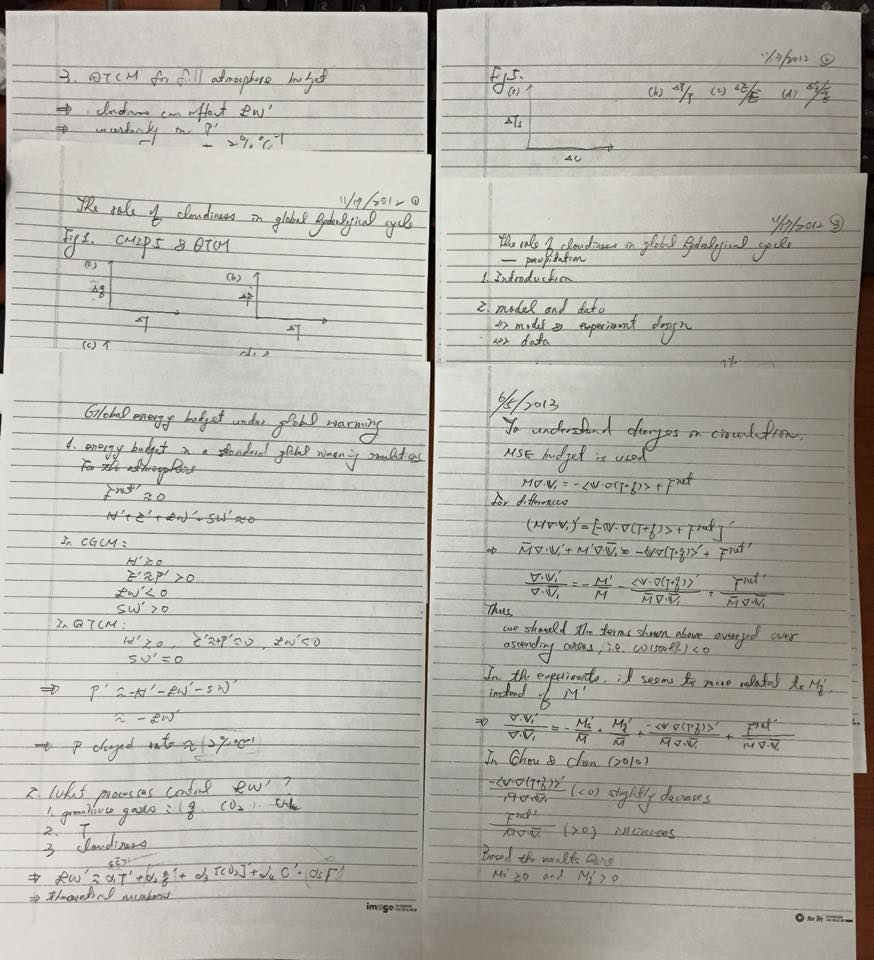 3. QTCM for full atmosphere budget
⇒ cloudiness can affect LW'
⇒ uncertainty in P'
2% °C⁻¹
11/17/2012 ①
The role of cloudiness in global hydrological cycle
Fig 1. CMIP5 & QTCM
(a) (b)
Δq ΔP
ΔT ΔT
(c) (d)
Global energy budget under global warming
1. energy budget in a standard global warming simulations
For the atmosphere
F^net' ≈ 0
H' + E' + LW' + SW' ≈ 0
In CGCM:
H' ≥ 0
E' ≈ P' > 0
LW' < 0
SW' > 0
In QTCM:
H' ≥ 0, E' ≈ P' ≈ 0, LW' < 0
SW' = 0
⇒ P' ≈ -H' - LW' - SW'
≈ -LW'
⇒ P changed rate ≈
2. What processes control LW'?
1. greenhouse gases : q CO₂
2. T
3 cloudiness
⇒ LW' ≈ α₁T' + α₂q' + α₃[CO₂]' + α₄C'
⇒ theoretical numbers
imago
11/17/2012 ②
Fig 5.
(a) (b) (c) (d)
ΔTs
ΔC
11/17/2012 ③
The role of cloudiness on global hydrological cycle
— precipitation
1. Introduction
2. model and data
<1> model & experiment design
<2> data
6/5/2013
To understand changes in circulation,
MSE budget is used
M∇·V₁ = -<V·∇(T+q)> + F^net
For differences
(M∇·V₁)' = [-<V·∇(T+q)> + F^net]'
⇒ M̄∇·V₁' + M'∇·V̄₁ ≈ -<V·∇(T+q)>' + F^net'
∇·V₁'/∇·V̄₁ = -M'/M̄ - <V·∇(T+q)>'/M̄∇·V̄₁ + F^net'/M̄∇·V̄₁
Thus
we should the terms shown above averaged over
ascending areas, i.e. ω(500hPa) < 0
In the experiments, it seems to more related to Mq'
instead of M'
⇒ ∇·V₁'/∇·V̄₁ = -Ms'/M̄ + Mq'/M̄ + -<V·∇(T+q)>'/M̄∇·V̄₁ + F^net'/M̄∇·V̄₁
In Chou & Chen (2010)
-<V·∇(T+q)>'/M̄∇·V̄₁ (<0) slightly decreases
F^net'/M̄∇·V̄₁ (>0) increases
Based the results
Ms' ≥ 0 and Mq' > 0
加新